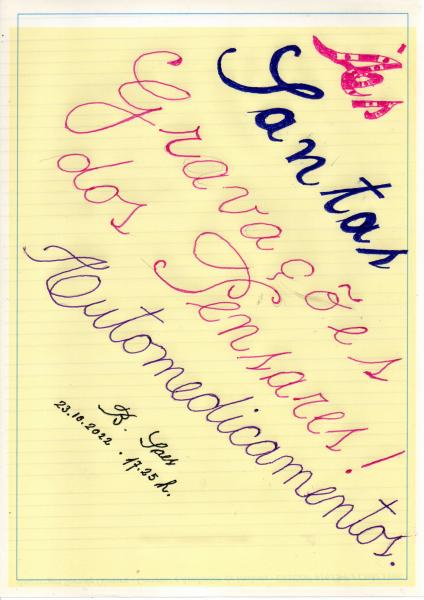 Santas
Gravações
dos Pensares!
Automedicamentos.
B.
23.10.2022 . 17.25 h.